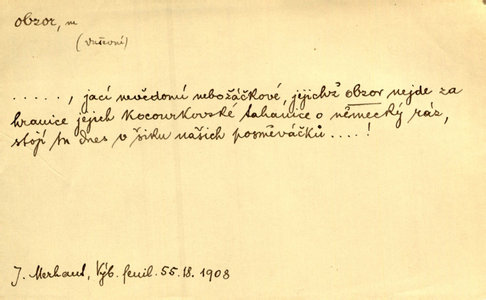 obzor, m
(duševní)
. . . . . , jací nevědomí nebožáčkové, jejichž obzor nejde za
hranice jejich Kocourkovské tahanice o německý ráz,
stojí tu dnes v šiku našich posměváčků . . . . !
J. Merhaut, Výb. feuil. 55. 18. 1908